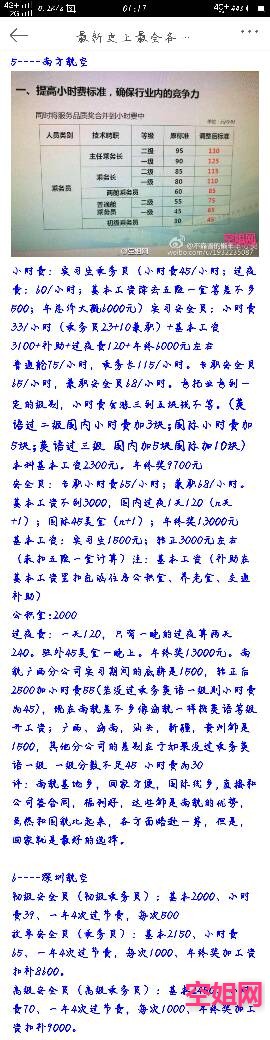 4G+
2G
0.2K/s
01:17
4G+
最新史上最全各…
5----南方航空
一、提高小时费标准，确保行业内的竞争力
同时将服务品质奖合并到小时费中
单位：元/小时
人员类别 技术聘职 等级 原标准 调整后标准
乘务员 主任乘务长 二级 95 130
一级 90 125
乘务长 二级 85 115
一级 80 110
两舱乘务员 60 85
普通舱乘务员 二级 55 75
一级 45 65
初级乘务员 30 45
weibo.com/u/1932235087
空姐网
小时费：实习生乘务员（小时费45/小时；过夜
费：60/小时；基本工资除去五险一金等差不多
500；年总许大概6000元）实习安全员：小时费
33/小时（乘务员23+10兼职）+基本工资
3100+补助+过夜费120+年终6000元左右
普通舱75/小时，乘务长115/小时。专职安全员
65/小时，兼职安全员68/小时。当托业达到一
定的级别，小时费会涨三到五块钱不等。(英
语过二级国内小时费加3块;国际小时费加
5块;英语过三级 国内加5块国际加10块)
本科基本工资2300元。年终奖9700元
安全员：专职小时费65/小时；兼职68/小时。
基本工资不到3000，国内过夜1天120（n天
+1）；国际45美金（n+1）；年终奖13000元
基本工资：实习生1500元；转正3000元左右
（未扣五险一金计算）注：基本工资（补助在
基本工资里扣包括住房公积金、养老金、交通
补助）
公积金:2000
过夜费：一天120，只有一晚的过夜算两天
240。驻外45美金一晚上。年终奖13000元。南
航广西分公司实习期间的底薪是1500，转正后
2500加小时费55(若没过乘务英语一级则小时费
为45)，现在南航差不多像海航一样按英语等级
开工资；广西、海南，汕头，新疆，贵州都是
1500，其他分公司的差别在于如果没过乘务英
语一级 一级分数不足45 小时费为30
评：南航基地多，回家方便，国际线多,直接和
公司签合同，福利好，这些都是南航的优势，
虽然和国航比起来，各方面略逊一筹，但是，
回家就是最好的选择。
6----深圳航空
初级安全员（初级乘务员）：基本2000、小时
费39、一年4次过节费，每次500
效率安全员（乘务员）：基本2150、小时费
65、一年4次过节费，每次1000、年终奖加工资
扣补8600。
高级安全员（高级乘务员）：基本2450、小时
费70、一年4次过节费，每次1000、年终奖加工
资扣补9000。
空姐网